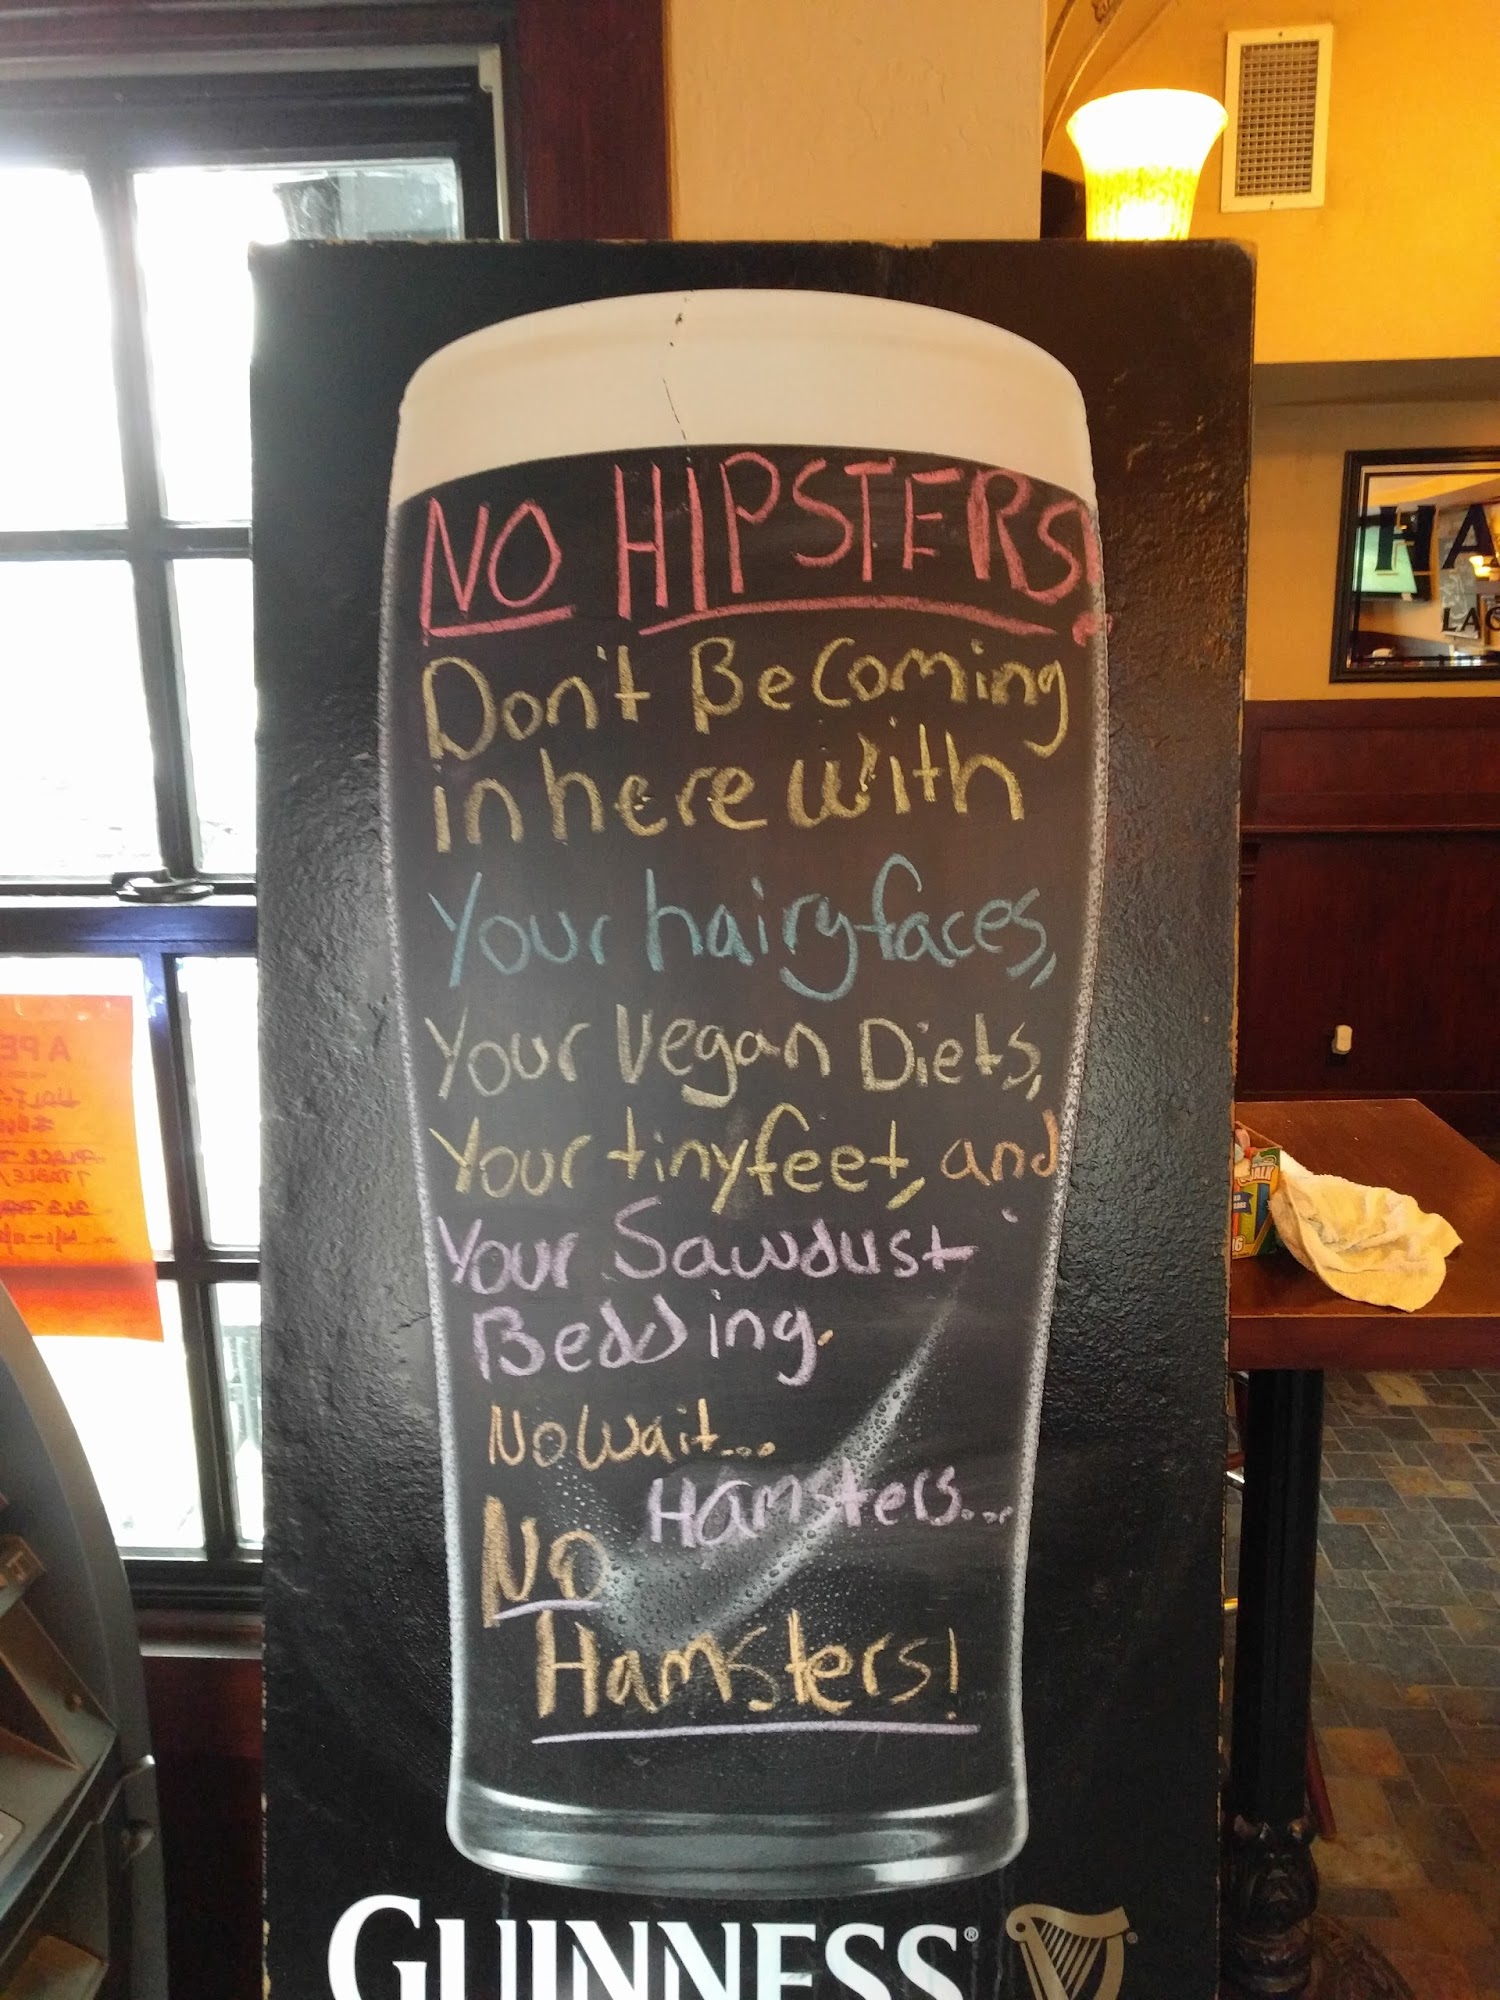 NO HIPSTERS!
Don't Be Coming
in here with
Your hairy faces,
Your Vegan Diets,
Your tiny feet, and
Your Sawdust
Bedding.
No Wait...
Hamsters...
NO
Hamsters!
GUINNESS®
HA
LAG
A PE
16